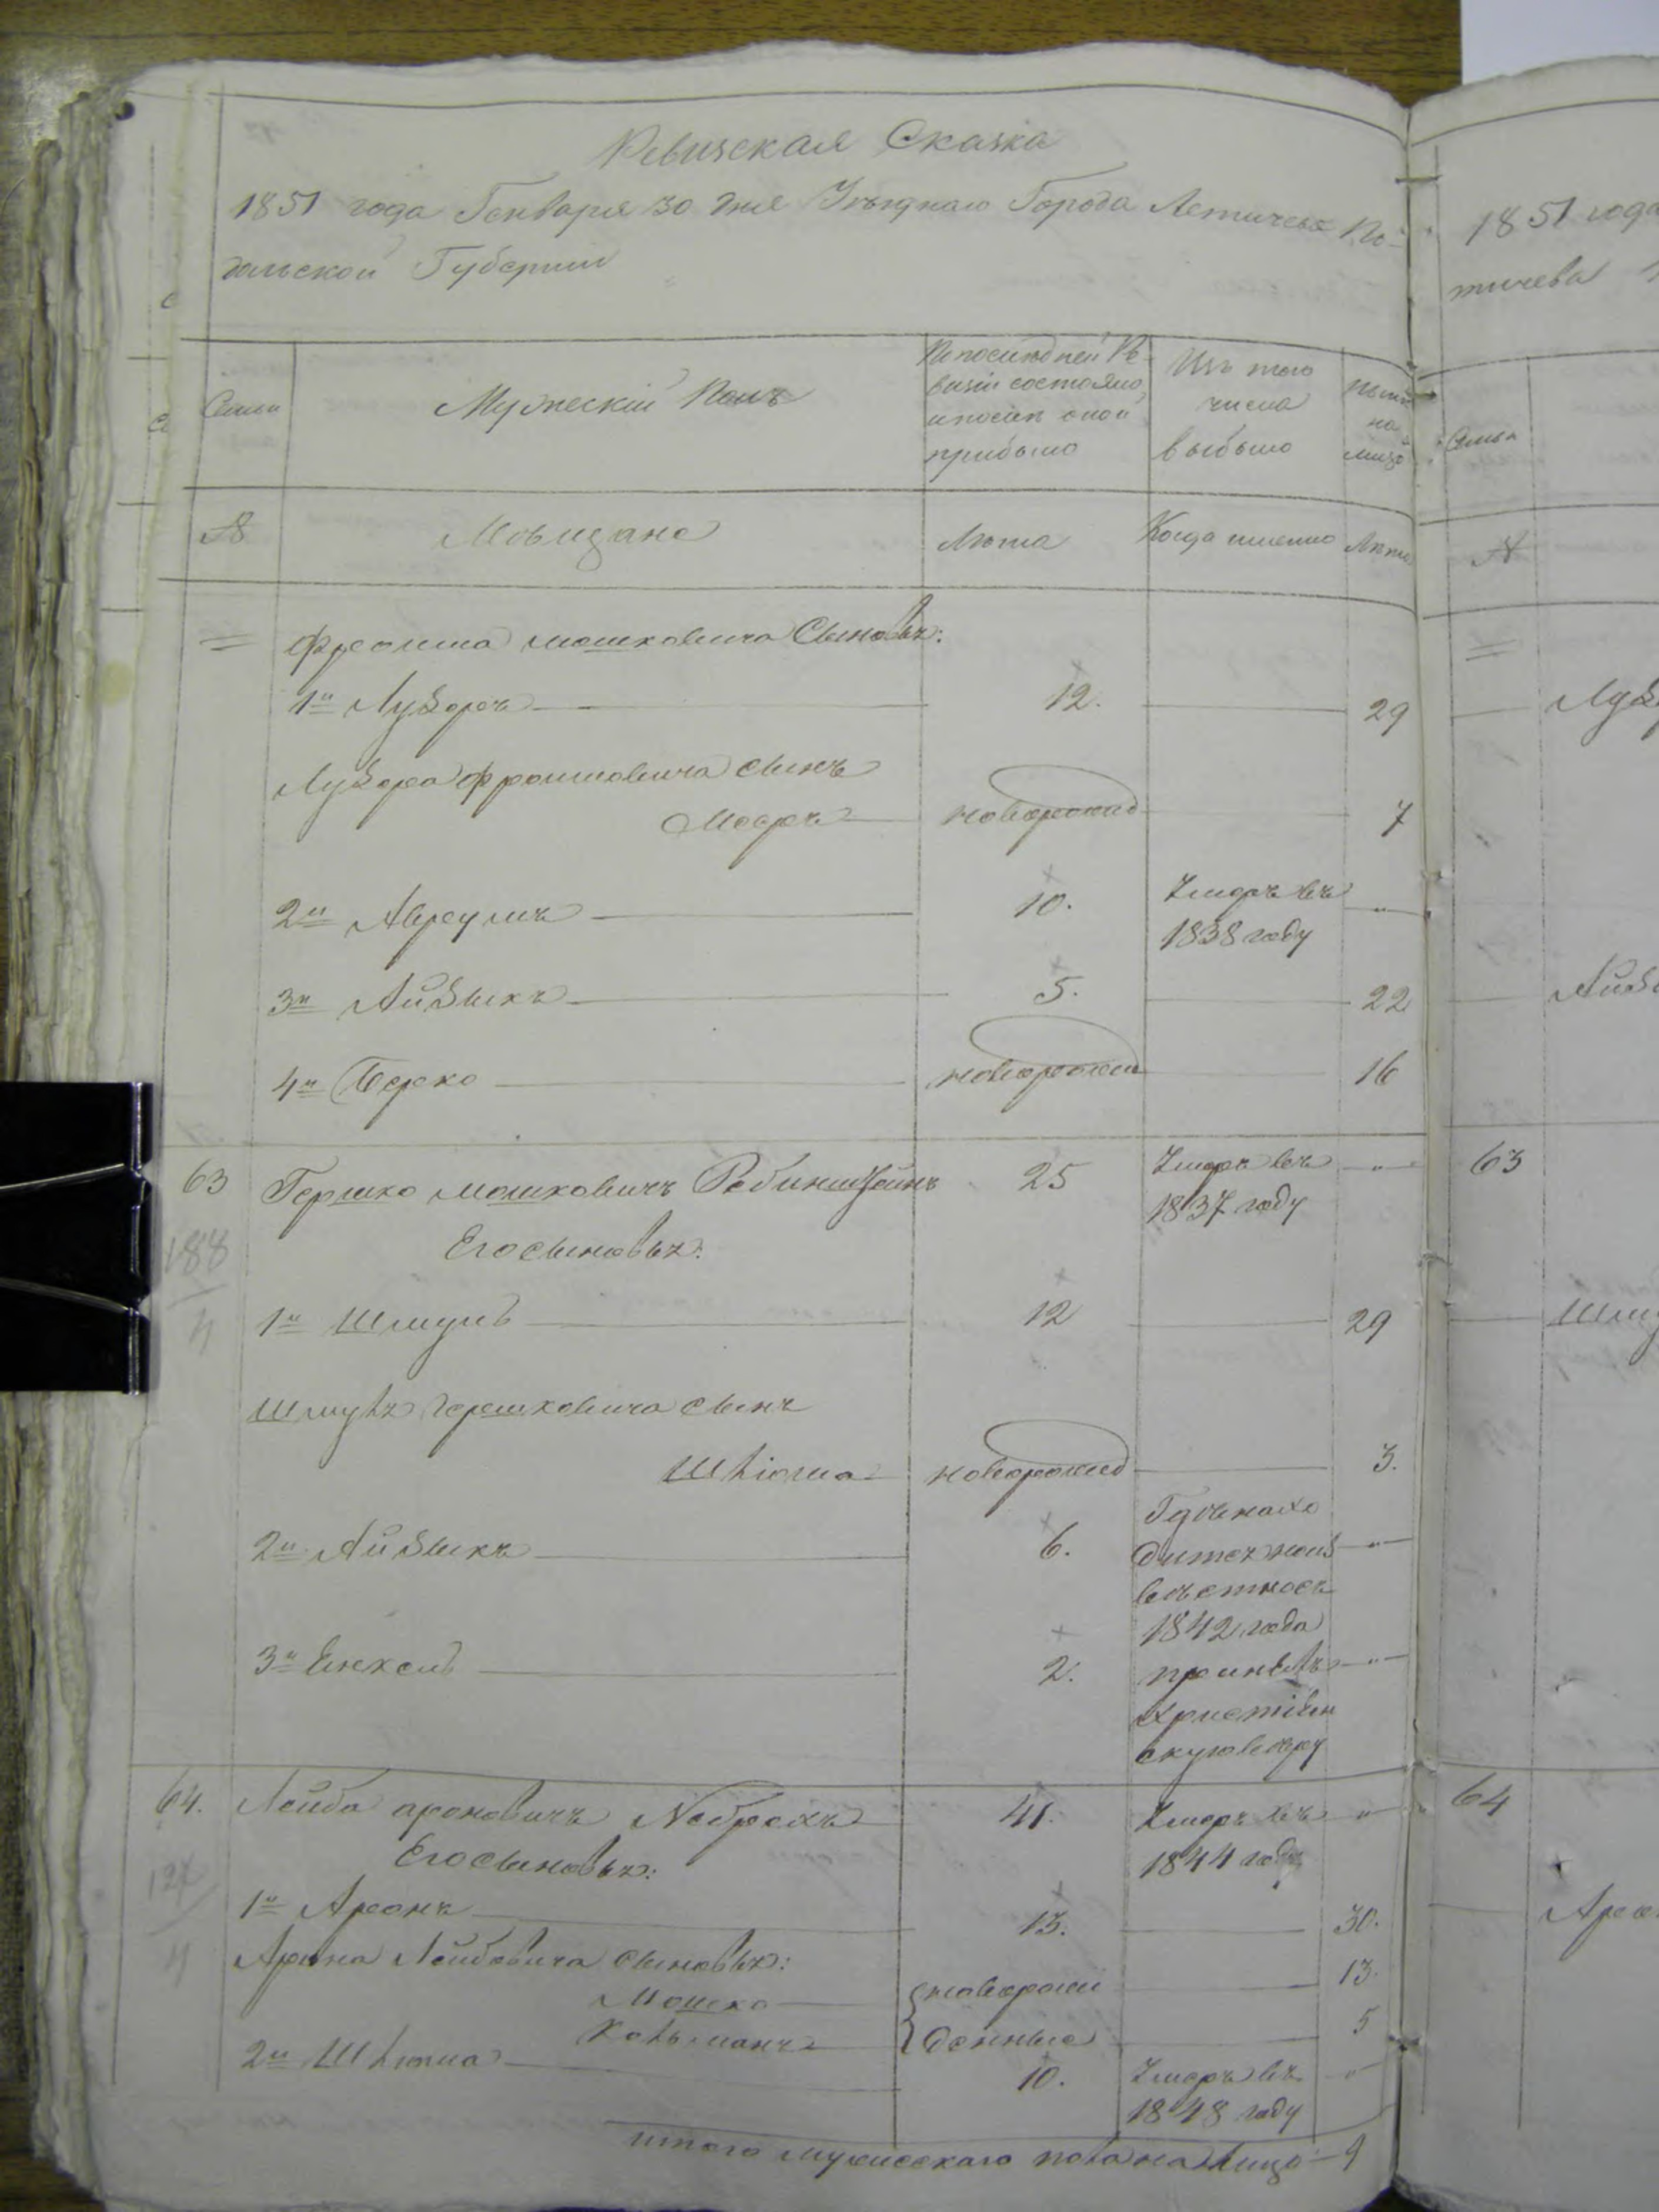 Ревизская Сказка
1851 года Генваря 30 дня Уѣзднаго Города Летичева По-
дольской Губерніи
Семьи
Мужескій Полъ
По последней Ре-
визіи состояло
и после оной
прибыло
Изъ того
числа
выбыло
Ныне
на
лицо
№
Мѣщане
Лѣта
Когда именно
Лѣта
Фроима Мошковича Сыновья:
1й Лузоръ 12. 29
Лузора Фроимовича сынъ
Мееръ новорожд 7
2й Авреумъ 10. Умеръ въ 1838 году "
3й Айзыкъ 5. 22
4й Берко новорожд 16
63 Гершко Мошковичъ 25 Умеръ въ 1837 году "
188
4
Его сыновья:
1й Шмуль 12 29
Шмуля Гершковича сынъ
Шліома новорожд 3.
2й Айзыкъ 6. Где нахо
дится неиз "
вѣстно съ
1842 года
3й Енкель 2. принялъ "
христіян
скую веру
64. Лейба Ароновичъ 41. Умеръ въ 1844 году "
Его сыновья:
1й Аронъ 13. 30.
Арона Лейбовича сыновья:
Мошко { новорож 13.
Кальманъ { денные 5
2й Шліома 10. Умеръ въ 1848 году "
итого мужескаго пола на лицо – 9
1851 года
тичева
Семья
№
Лузо
Айзы
63
Шму
64
Аро